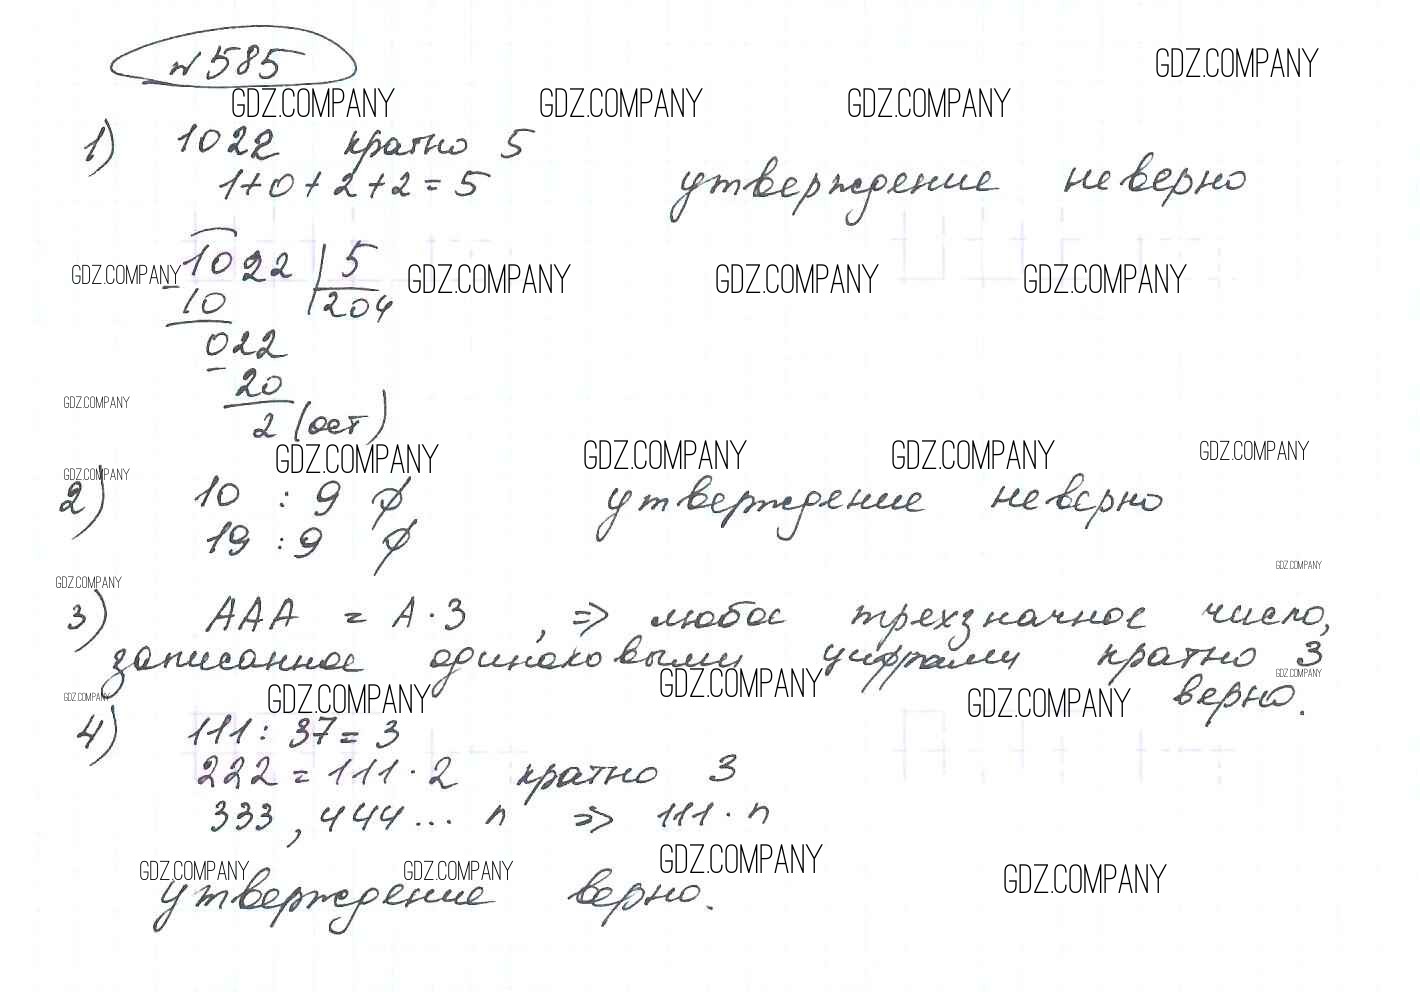 № 585
GDZ.COMPANY
GDZ.COMPANY GDZ.COMPANY GDZ.COMPANY
1) 1022 кратно 5
1+0+2+2=5 утверждение неверно
1022 | 5
GDZ.COMPANY GDZ.COMPANY GDZ.COMPANY GDZ.COMPANY
- 10 204
022
- 20
GDZ.COMPANY
2 (ост)
GDZ.COMPANY GDZ.COMPANY GDZ.COMPANY GDZ.COMPANY
GDZ.COMPANY
2) 10 : 9 ∅ утверждение неверно
19 : 9 ∅
GDZ.COMPANY
GDZ.COMPANY
3) AAA = A · 3 , => любое трехзначное число,
записанное одинаковыми цифрами кратно 3
GDZ.COMPANY
GDZ.COMPANY GDZ.COMPANY GDZ.COMPANY GDZ.COMPANY верно.
4) 111 : 37 = 3
222 = 111 · 2 кратно 3
333, 444 ... n => 111 · n
GDZ.COMPANY GDZ.COMPANY GDZ.COMPANY GDZ.COMPANY
утверждение верно.